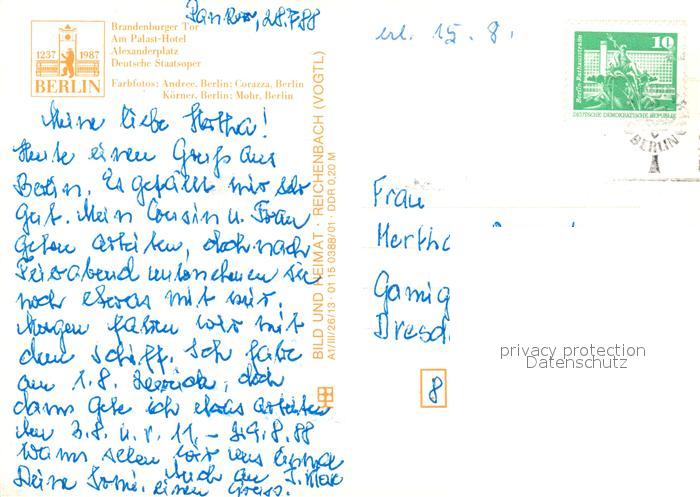 Pankow, 28.7.88
erl. 15. 8.
Brandenburger Tor
Am Palast-Hotel
Alexanderplatz
Deutsche Staatsoper
1237 1987
BERLIN
Farbfotos: Andree, Berlin; Corazza, Berlin
Körner, Berlin; Mohr, Berlin
Meine liebe Hertha!
Heute einen Gruß aus
Berlin. Es gefällt mir sehr
gut. Mein Cousin u. Frau
gehen arbeiten, doch nach
Feierabend unternehmen sie
noch etwas mit mir.
Morgen fahren wir mit
dem Schiff. Ich fahre
am 1.8. zurück, doch
dann gehe ich etwas arbeiten
3.8. u. v. 11. – 19.8.88
Wann sehen wir uns
Deine Auch an
einen Gruss.
BILD UND HEIMAT · REICHENBACH (VOGTL)
A1/III/26/13 · 01 15 0388/01 · DDR 0,20 M
10
Berlin-Rathausstraße
DEUTSCHE DEMOKRATISCHE REPUBLIK
BERLIN
Frau
Hertha
Gamig
Dresd
8
privacy protection
Datenschutz